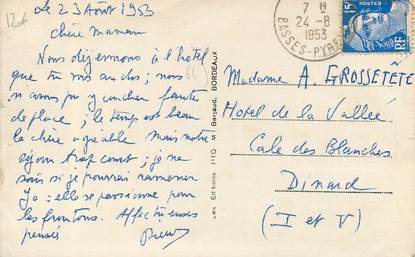 Le 23 Août 1953
chère maman
Nous déjeunons à l'hôtel
que tu vois au dos; nous
n'avons pu y coucher faute
de place; le temps est beau
la chère agréable mais notre
séjour trop court; je ne
sais si je pourrai ramener
Jo: elle se passionne pour
les frontons. Affectueuses
pensées
Les Éditions M. Bergaud, BORDEAUX
7 H
24-8
1953
BASSES-PYR
POSTES
15F
Madame A. GROSSETÊTE
Hotel de la Vallée
Cale des Blanches
Dinard
(I et V)